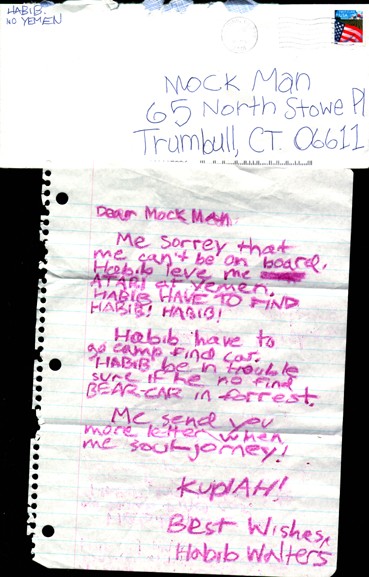 HABIB.
NO YEMEN
Mock Man
65 North Stowe Pl
Trumbull, CT. 06611
Dear Mock Man.
Me sorrey that
me can't be on board.
Habib leve me
ATARI at yemen.
HABIB HAVE TO FIND
HABIB! HABIB!
Habib have to
go camp find car.
HABIB be in trouble
sure if he no find
BEAR-CAR in forrest.
Me send you
more letter when
me souljorney!
KuplAH!
Best Wishes,
Habib Walters